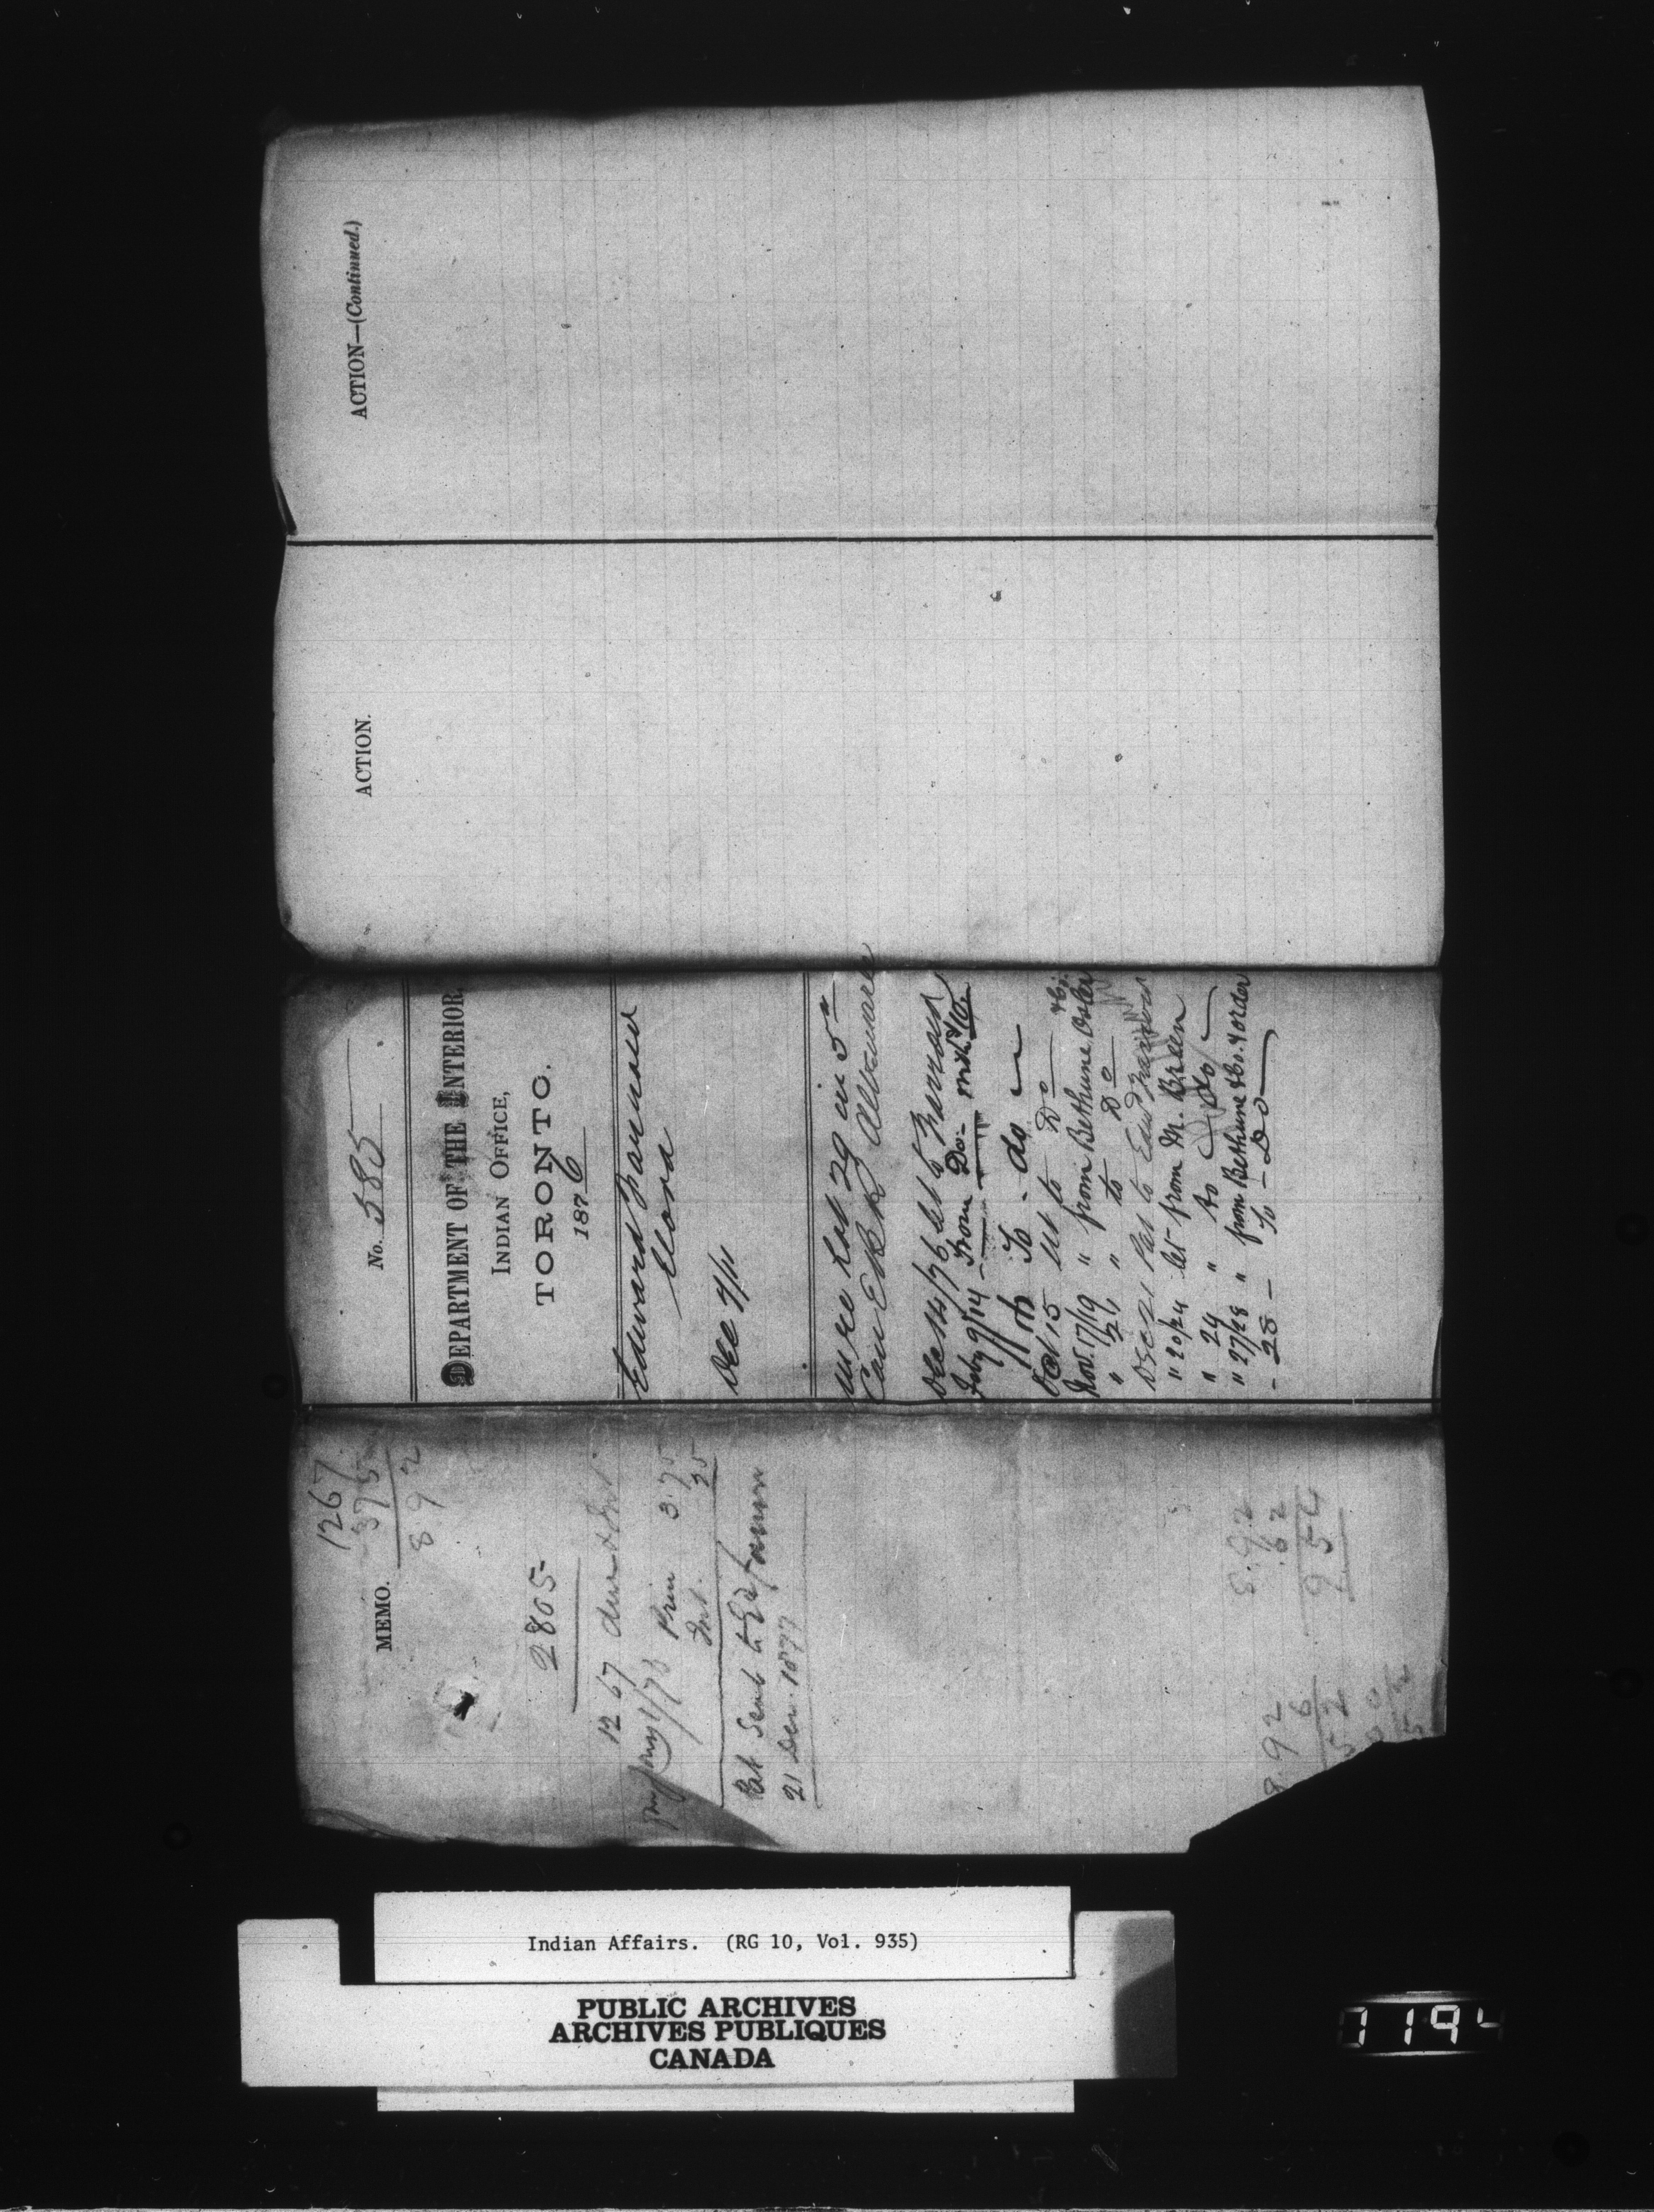 ACTION—(Continued.)
ACTION.
No. 585
DEPARTMENT OF THE INTERIOR,
INDIAN OFFICE,
TORONTO.
1876
Edward
Elora
Dec 7/11
in re Lot 29 in 5
Con EBR Albemarle
Dec 14/76 let to
Feby 9/14 - From Do - with
To - do
Oct 15 let to Do
Nov. 17/19 " from Bethune Osler &Co.
" 21 " to Do
Dec 21 Pat to Edwd
" 20/24 let from M. Breen
" 24 " to do
" 27/28 " from Bethune &Co. & order
- 28 - To - Do
MEMO.
1267
375
892
2805
12 67 due & Int
Prin 3.75
Int. 25
Pat Sent to Ed
21 Dec. 1877
8.92
.62
9 54
8.92
6
Indian Affairs. (RG 10, Vol. 935)
PUBLIC ARCHIVES
ARCHIVES PUBLIQUES
CANADA
1194